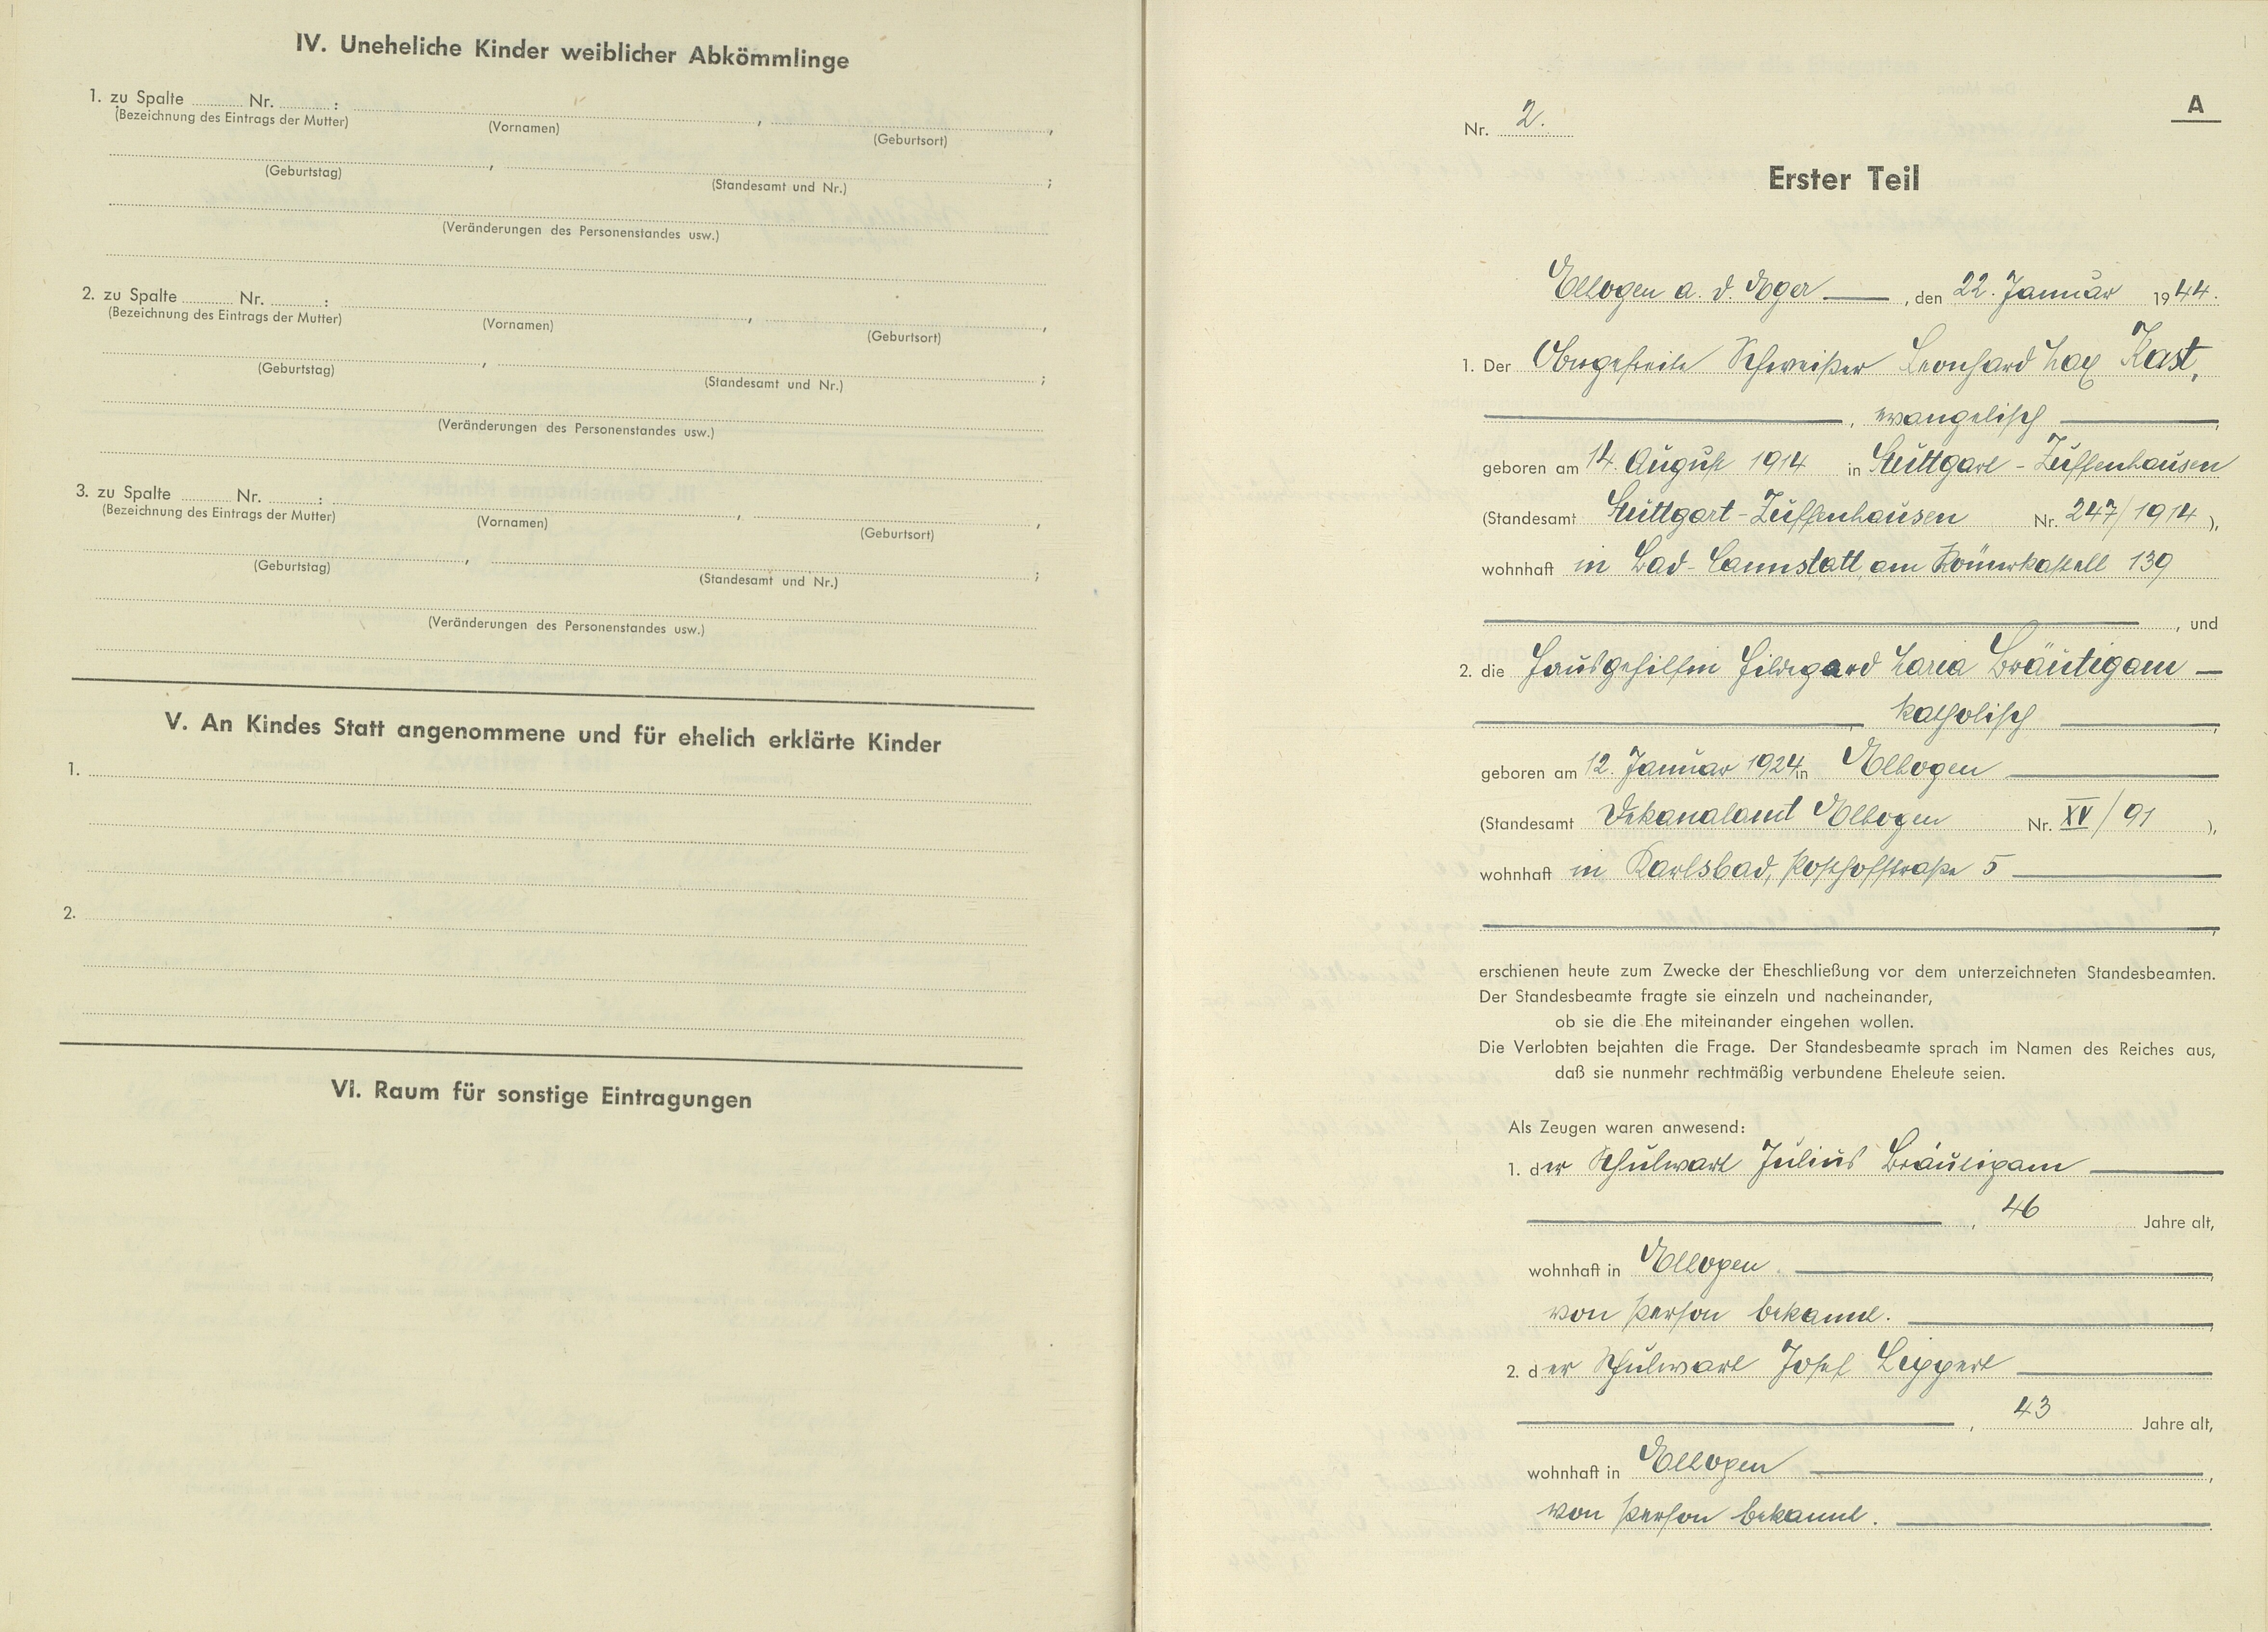 IV. Uneheliche Kinder weiblicher Abkömmlinge
1. zu Spalte ......... Nr. ......... : , ,
(Bezeichnung des Eintrags der Mutter) (Vornamen) (Geburtsort)
, ;
(Geburtstag) (Standesamt und Nr.)
(Veränderungen des Personenstandes usw.)
2. zu Spalte ......... Nr. ......... : , ,
(Bezeichnung des Eintrags der Mutter) (Vornamen) (Geburtsort)
, ;
(Geburtstag) (Standesamt und Nr.)
(Veränderungen des Personenstandes usw.)
3. zu Spalte ......... Nr. ......... : , ,
(Bezeichnung des Eintrags der Mutter) (Vornamen) (Geburtsort)
, ;
(Geburtstag) (Standesamt und Nr.)
(Veränderungen des Personenstandes usw.)
V. An Kindes Statt angenommene und für ehelich erklärte Kinder
1.
2.
VI. Raum für sonstige Eintragungen
A
Nr. 2.
Erster Teil
Elbogen a. d. Eger —, den 22. Januar 1944.
1. Der Obergefreite Schweißer Leonhard Max Kast,
, evangelisch ,
geboren am 14. August 1914 in Stuttgart-Zuffenhausen
(Standesamt Stuttgart-Zuffenhausen Nr. 247/1914 ),
wohnhaft in Bad-Cannstatt, am Römerkastell 139
, und
2. die Hausgehilfin Hildegard Maria Bräutigam —
katholisch ,
geboren am 12. Januar 1924 in Elbogen
(Standesamt Dekanalamt Elbogen Nr. XV/91 ),
wohnhaft in Karlsbad, Posthofstraße 5
,
erschienen heute zum Zwecke der Eheschließung vor dem unterzeichneten Standesbeamten.
Der Standesbeamte fragte sie einzeln und nacheinander,
ob sie die Ehe miteinander eingehen wollen.
Die Verlobten bejahten die Frage. Der Standesbeamte sprach im Namen des Reiches aus,
daß sie nunmehr rechtmäßig verbundene Eheleute seien.
Als Zeugen waren anwesend:
1. der Schulwart Julius Bräutigam
, 46 Jahre alt,
wohnhaft in Elbogen. ,
von Person bekannt. ,
2. der Schulwart Josef Lippert
, 43 Jahre alt,
wohnhaft in Elbogen ,
von Person bekannt. .